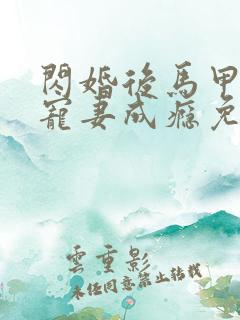 閃婚後馬甲
寵妻成癮免
雲重影
未经同意禁止转载